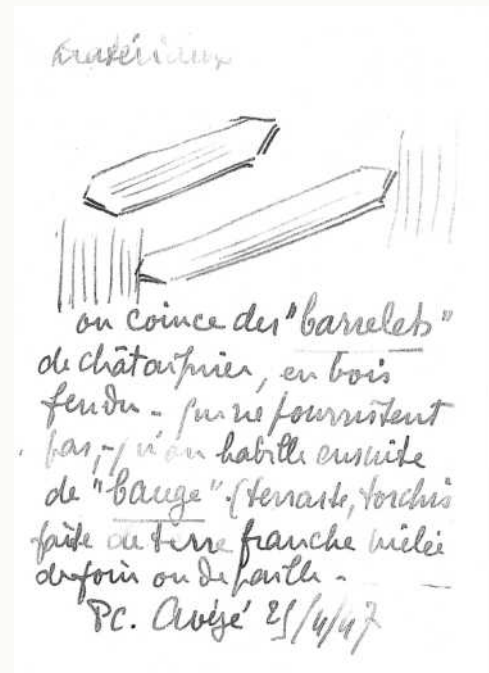 Matériaux
on coince des "barrelets"
de châtaignier, en bois
fendu - qui ne pourrissent
pas, - qu'on habille ensuite
de "bauge" (terrasse, torchis
faite de terre franche mêlée
de foin ou de paille -
Pc. Avézé 25/4/47